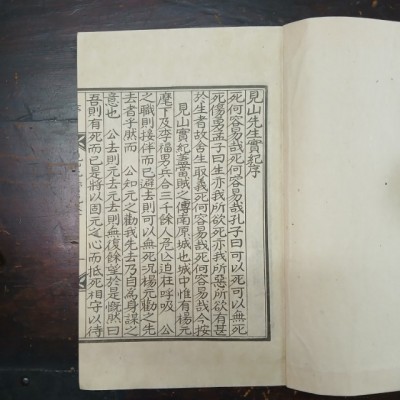 見山先生實紀序
死何容易哉死何容易哉孔子曰可以死可以無死
死傷勇孟子曰生亦我所欲死亦我所惡所欲有甚
於生者故舍生取義死何容易哉死何容易哉今按
見山實紀蓋當賊之傳南原城也城中惟有楊元
麾下及李福男兵合三千餘人危亡迫在呼吸 公
之職則接伴而已避去則可以無死況楊元勸之先
去者乎然而 公知元之勸我先去乃自為身謀之
意也 公去則元去元去則無復餘望於是慨然曰
吾則有死而已是將以固元之心而低死相守以待